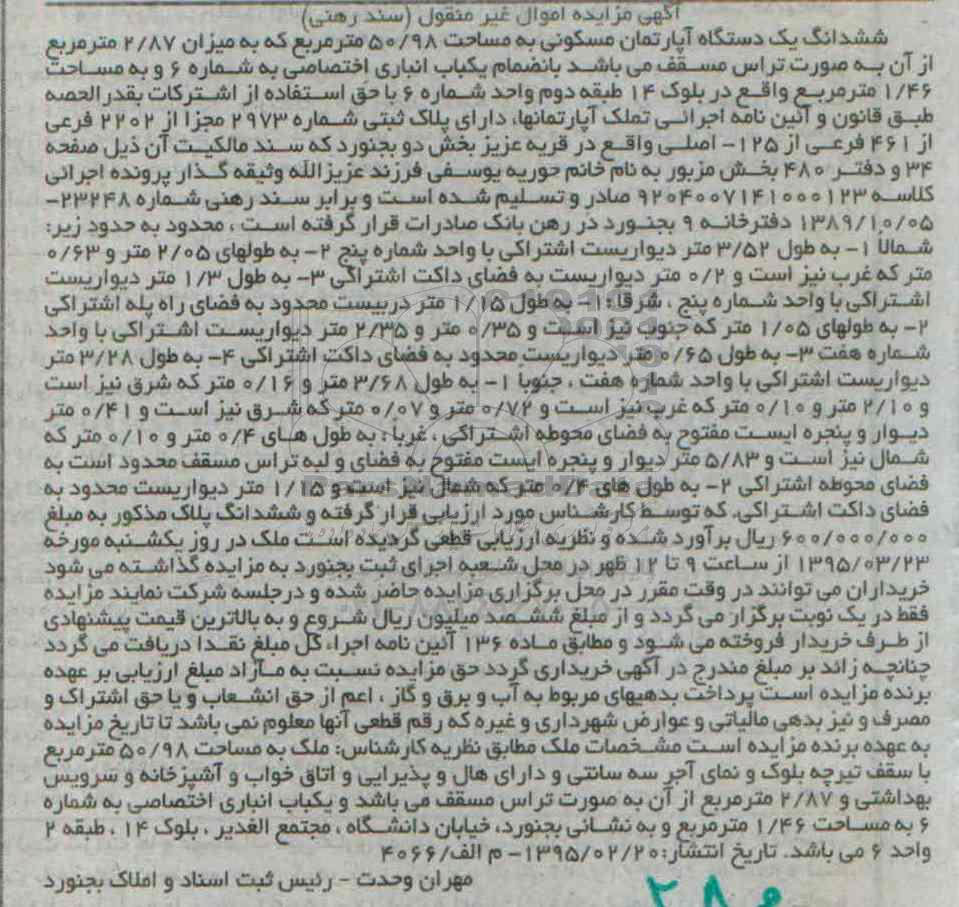 آگهی مزایده اموال غیر منقول (سند رهنی)
ششدانگ یک دستگاه آپارتمان مسکونی به مساحت ۵۰/۹۸ مترمربع که به میزان ۲/۸۷ مترمربع
از آن به صورت تراس مسقف می باشد بانضمام یکباب انباری اختصاصی به شماره ۶ و به مساحت
۱/۴۶ مترمربع واقع در بلوک ۱۴ طبقه دوم واحد شماره ۶ با حق استفاده از اشترکات بقدرالحصه
طبق قانون و آئین نامه اجرائی تملک آپارتمانها، دارای پلاک ثبتی شماره ۲۹۷۳ مجزا از ۲۲۰۲ فرعی
از ۴۶۱ فرعی از ۱۲۵- اصلی واقع در قریه عزیز بخش دو بجنورد که سند مالکیت آن ذیل صفحه
۳۴ و دفتر ۴۸۰ بخش مزبور به نام خانم حوریه یوسفی فرزند عزیزالله وثیقه گذار پرونده اجرائی
کلاسه ۹۲۰۴۰۰۷۱۴۱۰۰۰۱۲۳ صادر و تسلیم شده است و برابر سند رهنی شماره ۲۳۲۴۸-
۱۳۸۹/۱۰/۰۵ دفترخانه ۹ بجنورد در رهن بانک صادرات قرار گرفته است ، محدود به حدود زیر:
شمالاً ۱- به طول ۳/۵۲ متر دیواریست اشتراکی با واحد شماره پنج ۲- به طولهای ۲/۰۵ متر و ۰/۶۳
متر که غرب نیز است و ۰/۲ متر دیواریست به فضای داکت اشتراکی ۳- به طول ۱/۳ متر دیواریست
اشتراکی با واحد شماره پنج ، شرقا : ۱- به طول ۱/۱۵ متر دربیست محدود به فضای راه پله اشتراکی
۲- به طولهای ۱/۰۵ متر که جنوب نیز است و ۰/۳۵ متر و ۲/۳۵ متر دیواریست اشتراکی با واحد
شماره هفت ۳- به طول ۰/۶۵ متر دیواریست محدود به فضای داکت اشتراکی ۴- به طول ۳/۲۸ متر
دیواریست اشتراکی با واحد شماره هفت ، جنوبا ۱- به طول ۳/۶۸ متر و ۰/۱۶ متر که شرق نیز است
و ۲/۱۰ متر و ۰/۱۰ متر که غرب نیز است و ۰/۷۲ متر و ۰/۰۷ متر که شرق نیز است و ۰/۴۱ متر
دیوار و پنجره ایست مفتوح به فضای محوطه اشتراکی ، غربا : به طول های ۰/۴ متر و ۰/۱۰ متر که
شمال نیز است و ۵/۸۳ متر دیوار و پنجره ایست مفتوح به فضای و لبه تراس مسقف محدود است به
فضای محوطه اشتراکی ۲- به طول های ۱/۴ متر که شمال نیز است و ۱/۱۵ متر دیواریست محدود به
فضای داکت اشتراکی. که توسط کارشناس مورد ارزیابی قرار گرفته و ششدانگ پلاک مذکور به مبلغ
۶۰۰/۰۰۰/۰۰۰ ریال برآورد شده و نظریه ارزیابی قطعی گردیده است ملک در روز یکشنبه مورخه
۱۳۹۵/۰۳/۲۳ از ساعت ۹ تا ۱۲ ظهر در محل شعبه اجرای ثبت بجنورد به مزایده گذاشته می شود
خریداران می توانند در وقت مقرر در محل برگزاری مزایده حاضر شده و درجلسه شرکت نمایند مزایده
فقط در یک نوبت برگزار می گردد و از مبلغ ششصد میلیون ریال شروع و به بالاترین قیمت پیشنهادی
از طرف خریدار فروخته می شود و مطابق ماده ۱۳۶ آئین نامه اجراء، کل مبلغ نقدا دریافت می گردد
چنانچه زائد بر مبلغ مندرج در آگهی خریداری گردد حق مزایده نسبت به مازاد مبلغ ارزیابی بر عهده
برنده مزایده است پرداخت بدهیهای مربوط به آب و برق و گاز ، اعم از حق انشعاب و یا حق اشتراک و
مصرف و نیز بدهی مالیاتی و عوارض شهرداری و غیره که رقم قطعی آنها معلوم نمی باشد تا تاریخ مزایده
به عهده برنده مزایده است مشخصات ملک مطابق نظریه کارشناس: ملک به مساحت ۵۰/۹۸ مترمربع
با سقف تیرچه بلوک و نمای آجر سه سانتی و دارای هال و پذیرایی و اتاق خواب و آشپزخانه و سرویس
بهداشتی و ۲/۸۷ مترمربع از آن به صورت تراس مسقف می باشد و یکباب انباری اختصاصی به شماره
۶ به مساحت ۱/۴۶ مترمربع و به نشانی بجنورد، خیابان دانشگاه ، مجتمع الغدیر ، بلوک ۱۴ ، طبقه ۲
واحد ۶ می باشد. تاریخ انتشار: ۱۳۹۵/۰۲/۲۰- م الف/۴۰۶۶
مهران وحدت - رئیس ثبت اسناد و املاک بجنورد